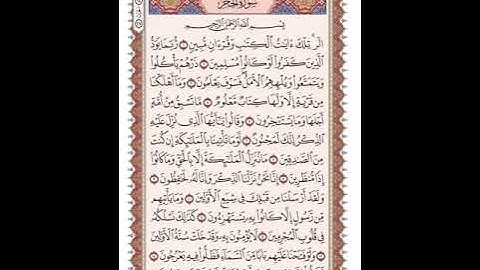 سورة الحجر
بسم الله الرحمن الرحيم
الٓر ۚ تِلْكَ ءَايَٰتُ ٱلْكِتَٰبِ وَقُرْءَانٍ مُّبِينٍ ۝١ رُّبَمَا يَوَدُّ
ٱلَّذِينَ كَفَرُوا۟ لَوْ كَانُوا۟ مُسْلِمِينَ ۝٢ ذَرْهُمْ يَأْكُلُوا۟
وَيَتَمَتَّعُوا۟ وَيُلْهِهِمُ ٱلْأَمَلُ ۖ فَسَوْفَ يَعْلَمُونَ ۝٣ وَمَآ أَهْلَكْنَا
مِن قَرْيَةٍ إِلَّا وَلَهَا كِتَابٌ مَّعْلُومٌ ۝٤ مَّا تَسْبِقُ مِنْ أُمَّةٍ
أَجَلَهَا وَمَا يَسْتَـْٔخِرُونَ ۝٥ وَقَالُوا۟ يَٰٓأَيُّهَا ٱلَّذِى نُزِّلَ عَلَيْهِ
ٱلذِّكْرُ إِنَّكَ لَمَجْنُونٌ ۝٦ لَّوْ مَا تَأْتِينَا بِٱلْمَلَٰٓئِكَةِ إِن كُنتَ
مِنَ ٱلصَّٰدِقِينَ ۝٧ مَا نُنَزِّلُ ٱلْمَلَٰٓئِكَةَ إِلَّا بِٱلْحَقِّ وَمَا كَانُوٓا۟
إِذًا مُّنظَرِينَ ۝٨ إِنَّا نَحْنُ نَزَّلْنَا ٱلذِّكْرَ وَإِنَّا لَهُۥ لَحَٰفِظُونَ ۝٩
وَلَقَدْ أَرْسَلْنَا مِن قَبْلِكَ فِى شِيَعِ ٱلْأَوَّلِينَ ۝١٠ وَمَا يَأْتِيهِم
مِّن رَّسُولٍ إِلَّا كَانُوا۟ بِهِۦ يَسْتَهْزِءُونَ ۝١١ كَذَٰلِكَ نَسْلُكُهُۥ
فِى قُلُوبِ ٱلْمُجْرِمِينَ ۝١٢ لَا يُؤْمِنُونَ بِهِۦ ۖ وَقَدْ خَلَتْ سُنَّةُ ٱلْأَوَّلِينَ
۝١٣ وَلَوْ فَتَحْنَا عَلَيْهِم بَابًا مِّنَ ٱلسَّمَآءِ فَظَلُّوا۟ فِيهِ يَعْرُجُونَ ۝١٤